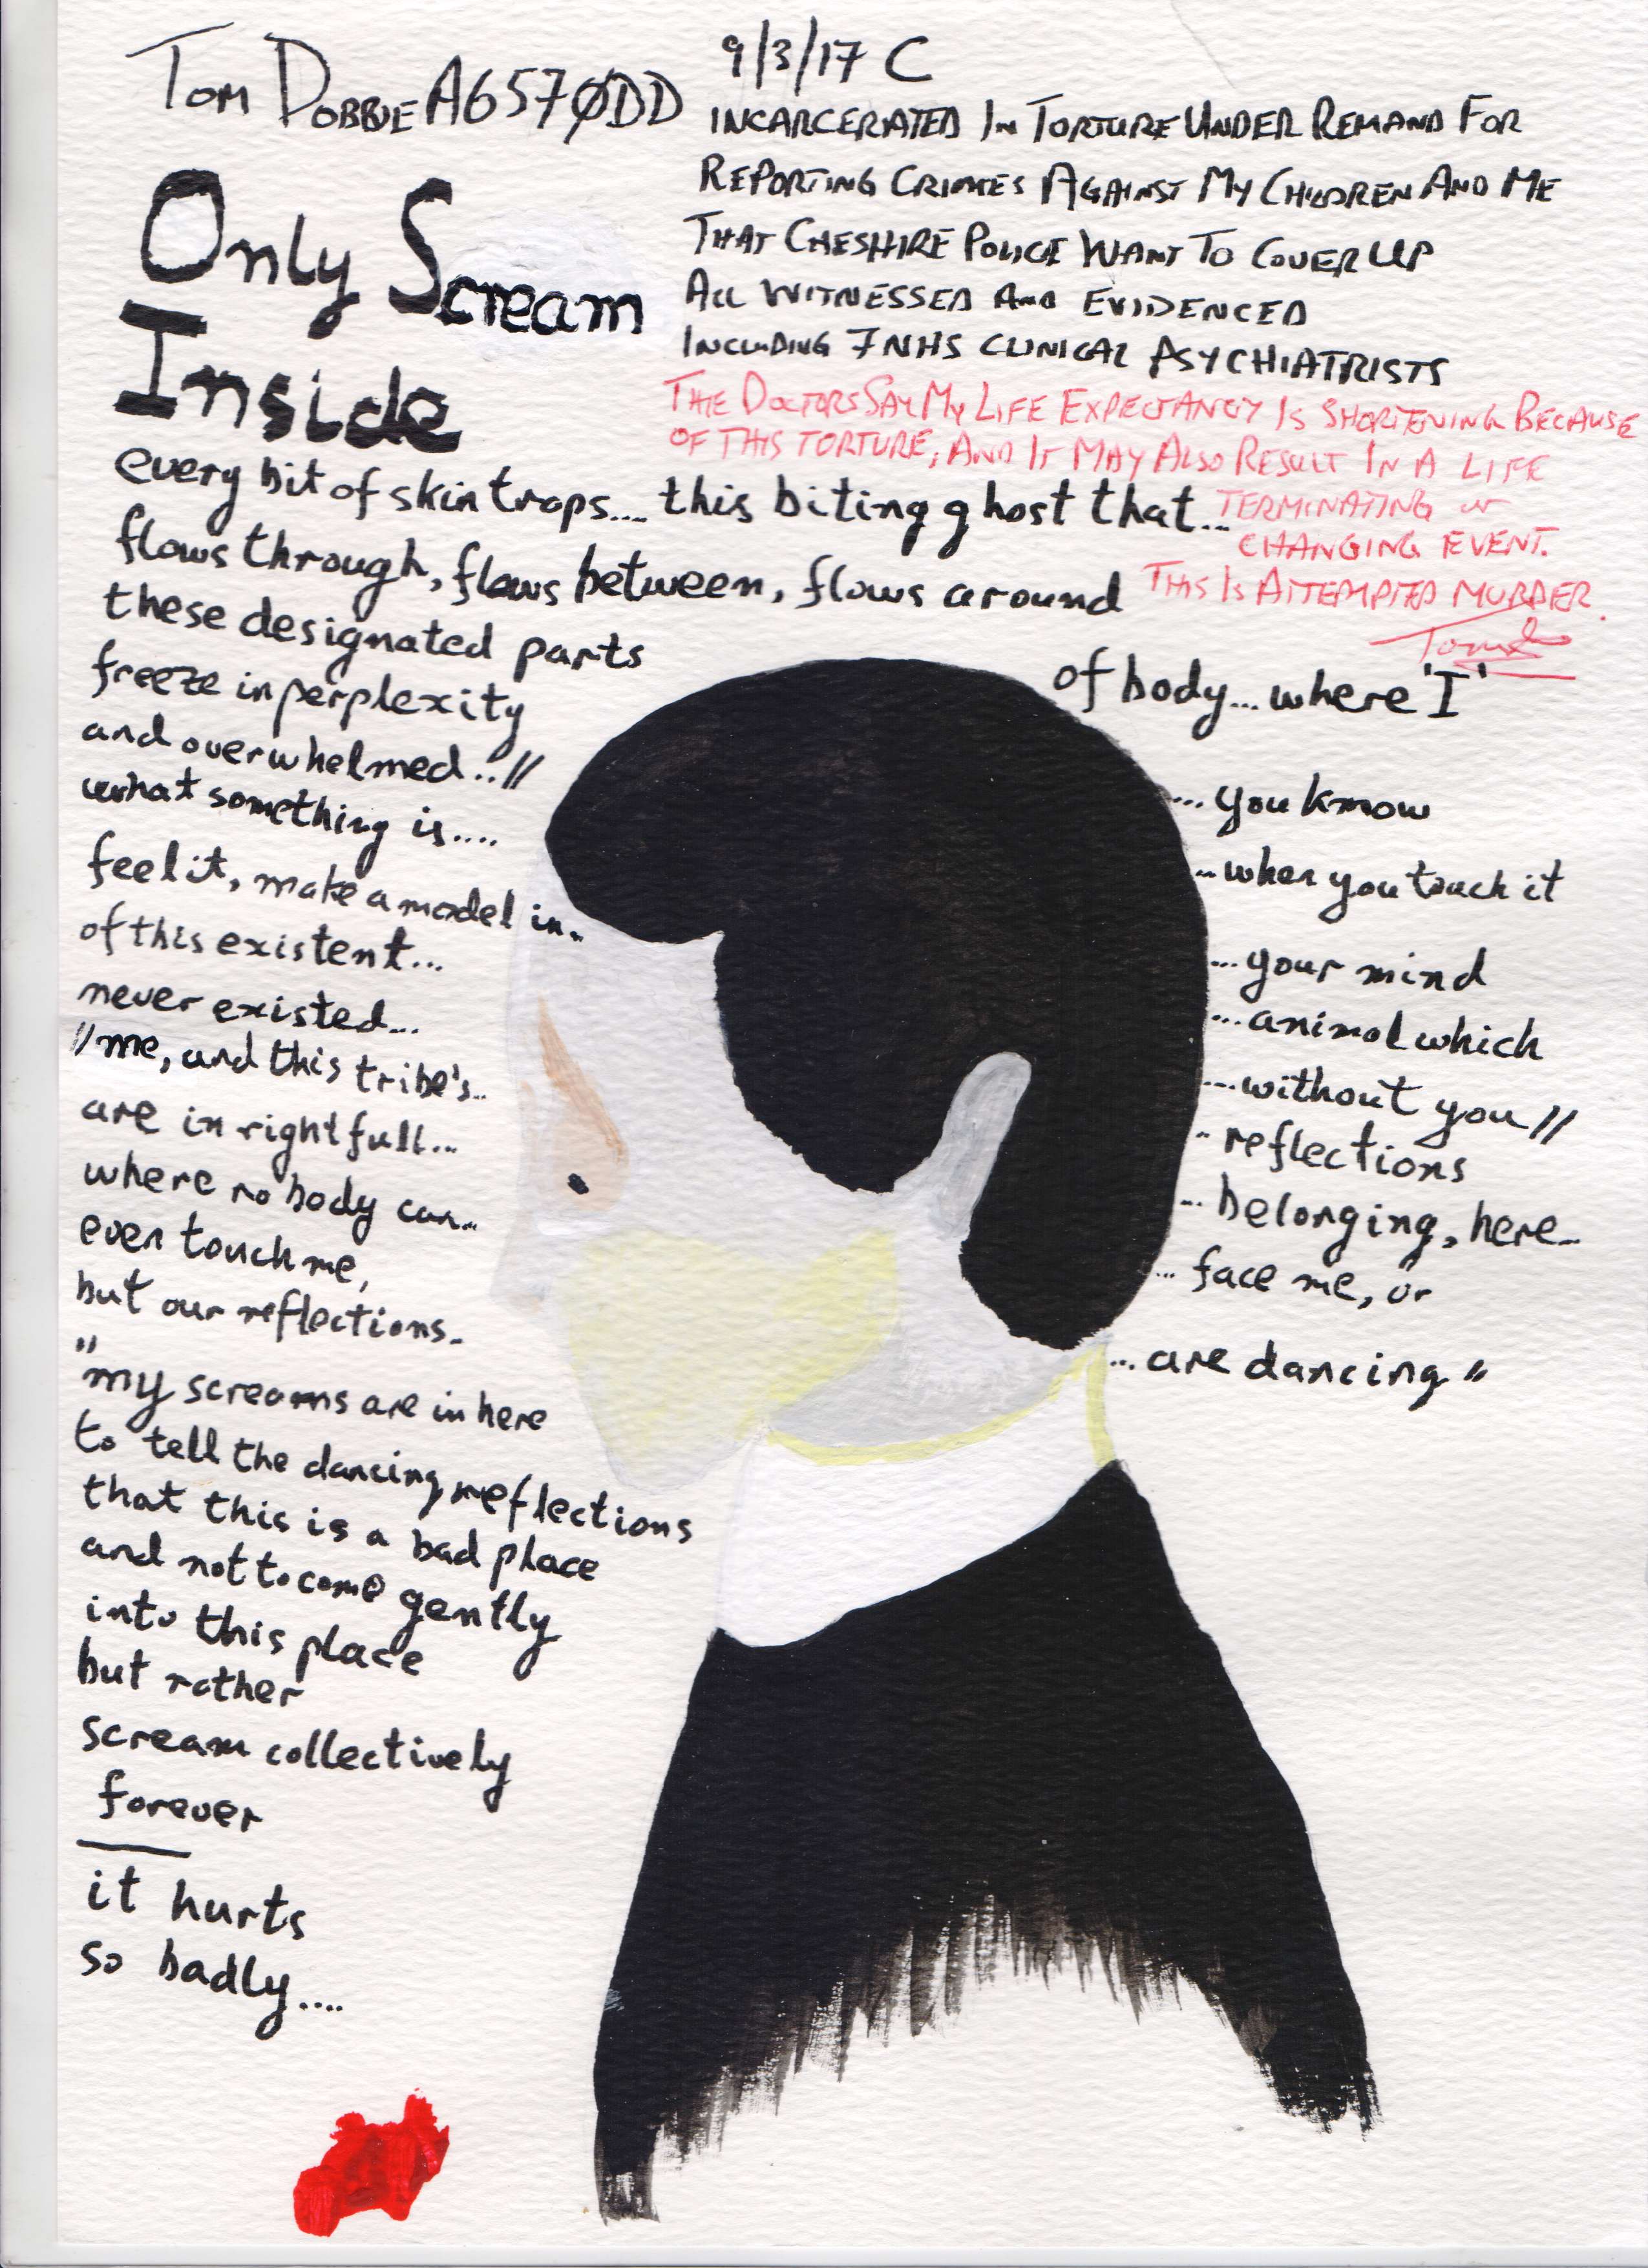 TOM DOBBIE A6570DD
9/3/17 C
INCARCERATED IN TORTURE UNDER REMAND FOR
REPORTING CRIMES AGAINST MY CHILDREN AND ME
THAT CHESHIRE POLICE WANT TO COVER UP
ALL WITNESSED AND EVIDENCED
INCLUDING 7 NHS CLINICAL PSYCHIATRISTS
THE DOCTORS SAY MY LIFE EXPECTANCY IS SHORTENING BECAUSE
OF THIS TORTURE, AND IT MAY ALSO RESULT IN A LIFE
TERMINATING or
CHANGING EVENT.
THIS IS ATTEMPTED MURDER.
Only Scream
Inside
every bit of skin traps.... this biting ghost that...
flows through, flows between, flows around
these designated parts
of body... where 'I'
freeze in perplexity
and overwhelmed..//
...you know
what something is....
...when you touch it
feel it, make a model in..
...your mind
of this existent...
...animal which
never existed...
...without you//
//me, and this tribe's..
..reflections
are in rightfull...
...belonging, here..
where no body can...
...face me, or
even touch me,
but our reflections..
...are dancing"
"my screams are in here
to tell the dancing reflections
that this is a bad place
and not to come gently
into this place
but rather
scream collectively
forever
it hurts
so badly....